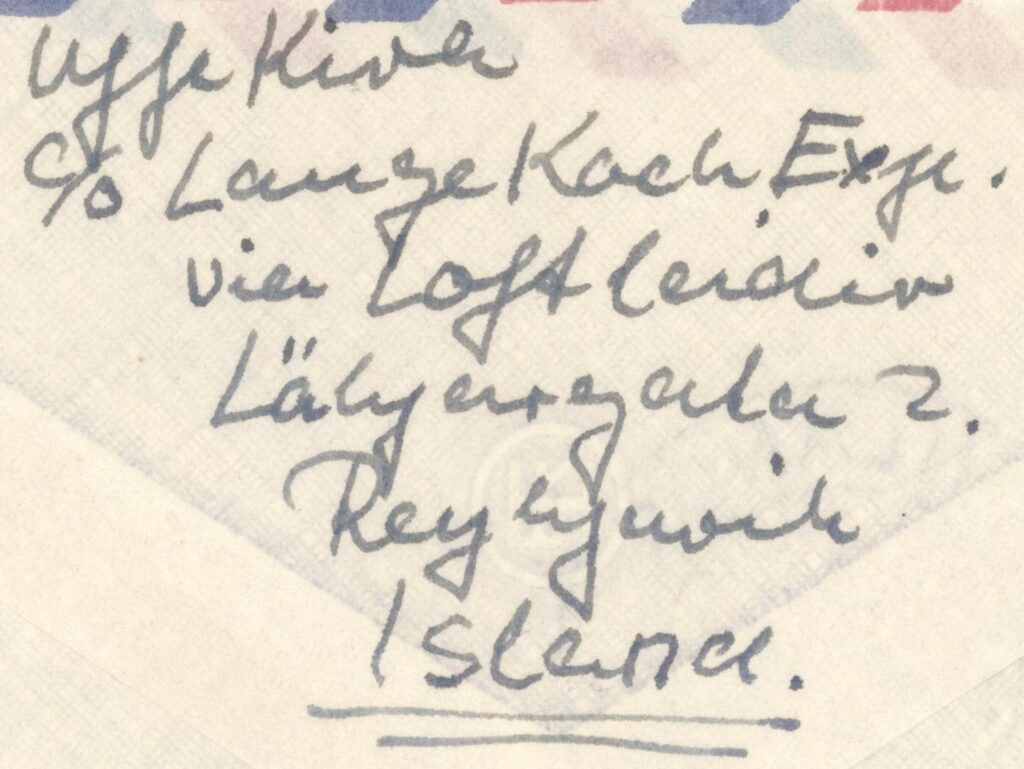 Uffe Kiva
c/o Lauge Koch Exp.
via Loftleidir
Läkjargata 2.
Reykjavik
Island.